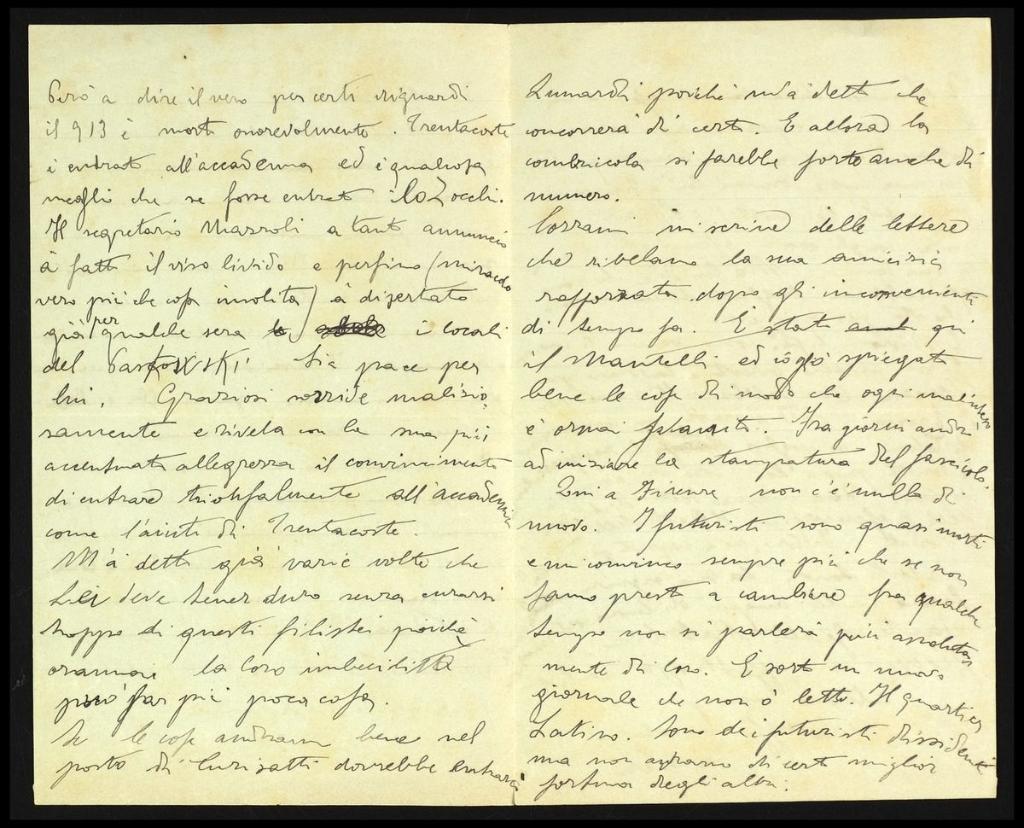 Però a dire il vero per certi riguardi
il 913 è morto onorevolmente. Trentacoste
è entrato all'accademia ed è qualcosa
meglio che se fosse entrato il Zocchi.
Il segretario a tanto annuncio
à fatto il viso livido e perfino (miracolo
vero più che cosa insolita) à disertato
già per qualche sera i locali
del Paszkowski. Sia pace per
lui. Graziosi sorride malizio,
samente e rivela con la sua più
accentuata allegrezza il convincimento
di entrare trionfalmente all'accademia
come l'aiuto di Trentacoste.
M'à detto già varie volte che
Lei deve tener duro senza curarsi
troppo di questi filistei poiché
oramai la loro imbecillità
può far più poca cosa.
Se le cose andranno bene nel
posto di dovrebbe entrarci
poiché m'à detto che
concorrerà di certo. E allora la
combriccola si farebbe forte anche di
numero.
mi scrive delle lettere
che rivelano la sua amicizia
rafforzata dopo gli inconvenienti
di tempo fa. È stato qui
il Mantelli ed io gli ò spiegato
bene le cose di modo che ogni malinteso
è ormai sfatato. Fra giorni andrà
ad iniziare la stampatura del fascicolo.
Qui a Firenze non c'è nulla di
nuovo. I futuristi sono quasi morti
e mi convinco sempre più che se non
fanno presto a cambiare fra qualche
tempo non si parlerà più assoluta
mente di loro. È sorto un nuovo
giornale che non ò letto. Il quartier
Latino. Sono dei futuristi dissidenti
ma non avranno di certo miglior
fortuna degli altri.